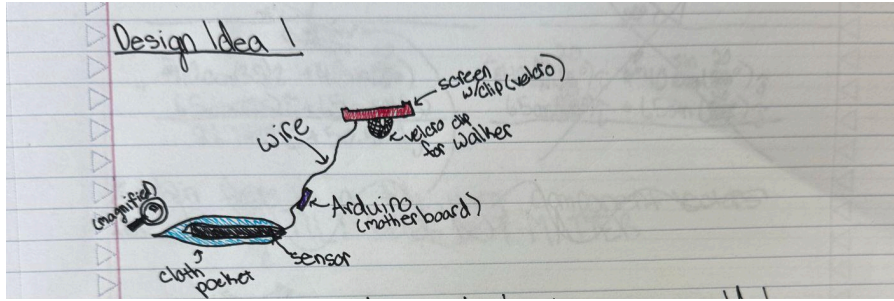 Design Idea 1
screen
w/clip (velcro)
velcro clip
for walker
wire
Arduino
(motherboard)
(magnified)
sensor
cloth
pocket